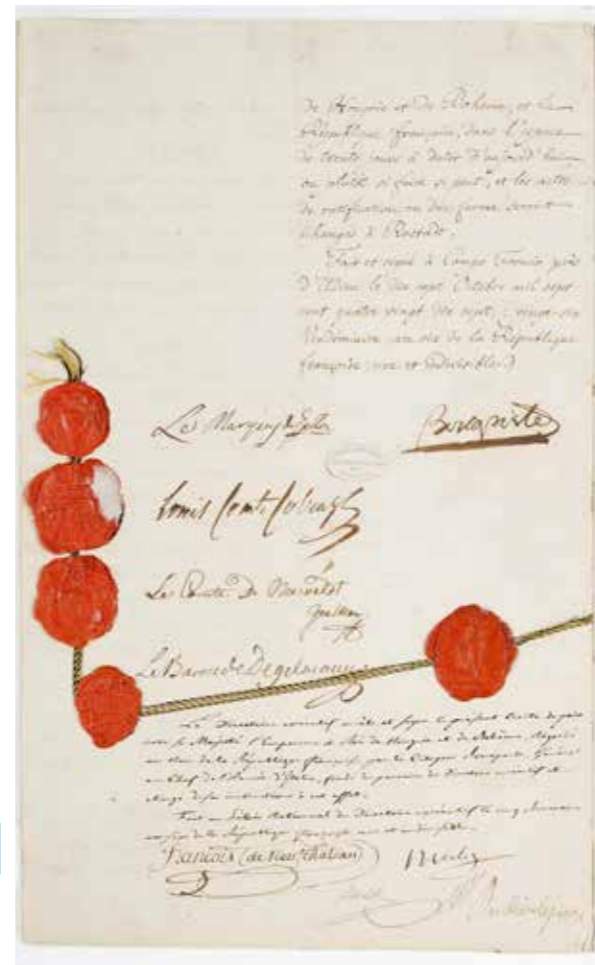 de Hongrie et de Bohême, et la
République française, dans l'espace
de trente jours à dater d'aujourd'hui
ou plutôt si faire se peut, et les actes
de ratification en due forme seront
échangés à Rastadt.
Fait et signé à Campo Formio près
d'Udine le dix sept Octobre mil sept
cent quatre vingt dix sept; vingt-six
Vendémiaire an six de la République
française, une et indivisible.
Le Marquis de Gallo
Bonaparte
Louis Comte Cobenzl
Le Comte De Meerveldt
Le Baron de Degelmann
Le Directoire exécutif arrête et signe le présent traité de paix
avec sa Majesté l'Empereur et Roi de Hongrie et de Bohême, négocié
au nom de la République française par le Citoyen Bonaparte Général
en Chef de l'Armée d'Italie, fondé de pouvoirs du Directoire exécutif et
chargé de ses instructions à cet effet.
Fait au Palais National du Directoire exécutif le cinq
an six de la République française une et indivisible.
François (de Neufchâteau)